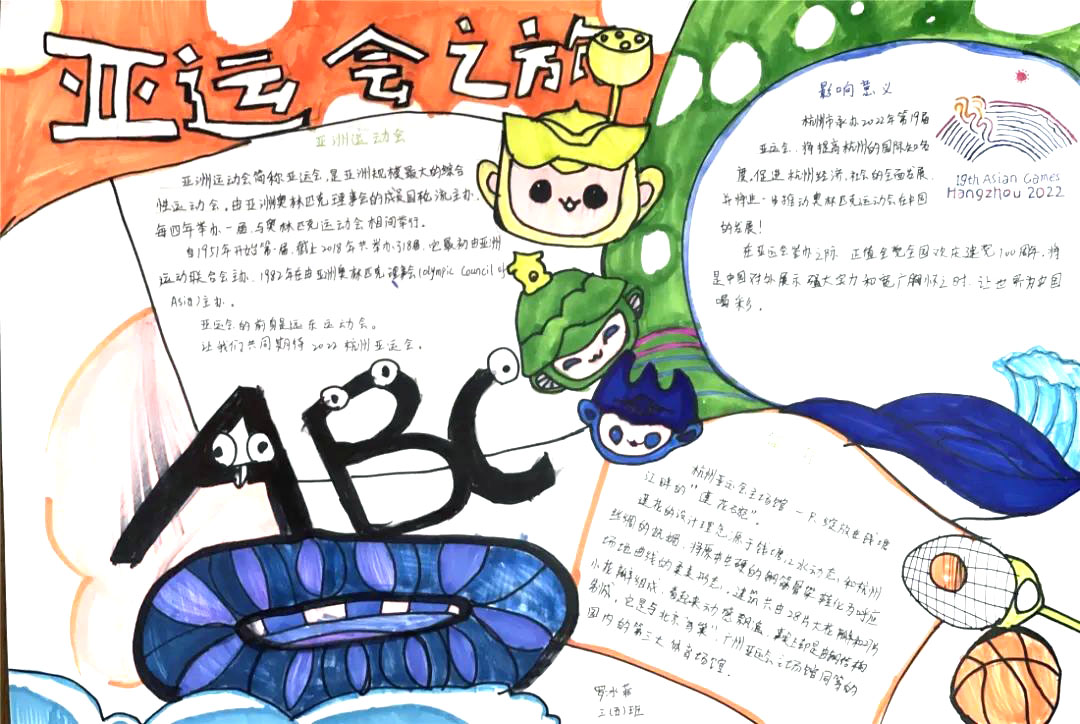 亚运会之旅
亚洲运动会
亚洲运动会简称亚运会,是亚洲规模最大的综合
性运动会,由亚洲奥林匹克理事会的成员国轮流主办,
每四年举办一届,与奥林匹克运动会相间举行。
自1951年开始第一届,截止2018年共举办了18届,也最初由亚洲
运动联合会主办,1982年后由亚洲奥林匹克理事会(olympic Council of
Asia)主办。
亚运会的前身是远东运动会。
让我们共同期待2022杭州亚运会。
ABC
影响意义
杭州市承办2022年第19届
亚运会,将提高杭州的国际知名
度,促进杭州经济,社会的全面发展,
并将进一步推动奥林匹克运动会在中国
的发展!
在亚运会举办之际,正值全党全国欢庆建党100周年,将
是中国对外展示强大实力和宽广胸怀之时,让世界为中国
喝彩。
19th Asian Games
Hangzhou 2022
杭州亚运会主场馆一只绽放在钱塘
江畔的“莲花碗”。
莲花的设计理念源于钱塘江水动态,和杭州
丝绸的纹理,将原本生硬的钢筋骨架转化为呼应
场地曲线的柔美形态,建筑共由28片大花瓣和27片
小花瓣组成,看起来动感飘逸,
务成,它是与北京“鸟巢”、广州亚运会主场馆同等的
国内的第三大体育场馆。
三(五)班